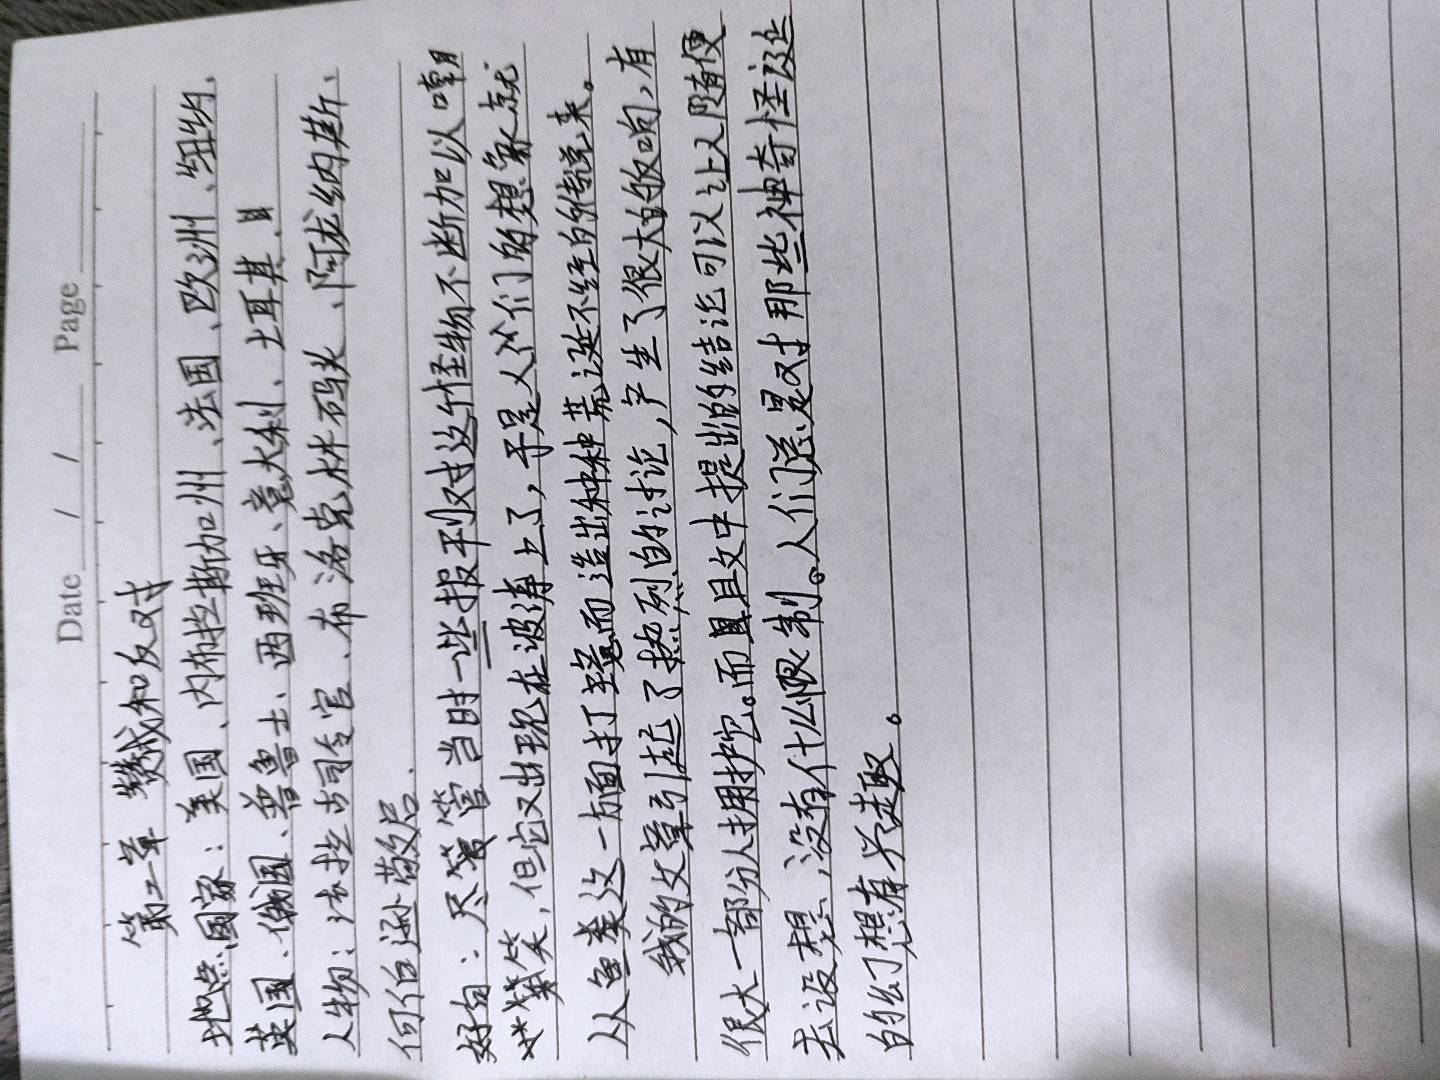 Date / / Page
第二章 赞成和反对
地点国家：美国、内布拉斯加州、法国、欧洲、纽约、
英国、俄国、普鲁士、西班牙、意大利、土耳其、
人物：法拉古司令官、布洛克林码头、阿龙纳斯、
何伯逊敬启.
好句：尽管当时一些报刊对这个怪物不断加以嘲
笑，但它又出现在波涛上了，于是人们的想象就
从鱼类这一方面打主意而造出种种荒诞不经的传说来。
我的文章引起了热烈的讨论，产生了很大的反响，有
很大一部分人拥护它。而且文中提出的结论可以让人随便
去设想，没有什么限制。人们总是对那些神奇怪诞
的幻想有兴趣。